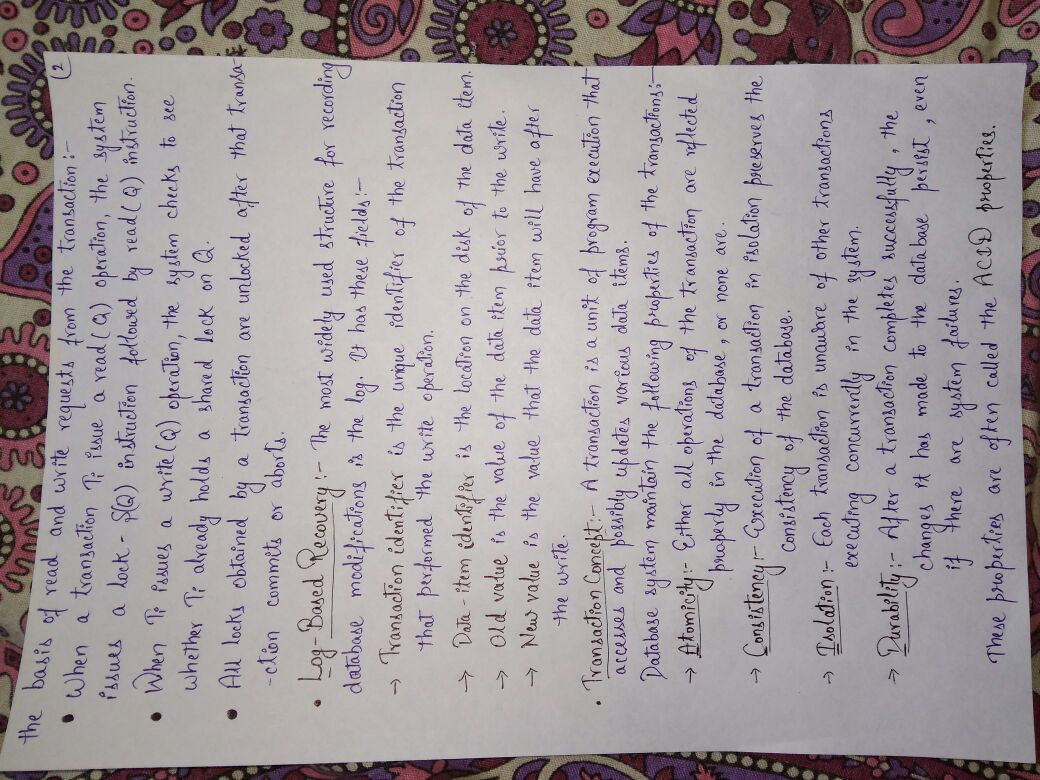 (2
the basis of read and write requests from the transaction :-
• When a transaction Ti issue a read(Q) operation, the system
issues a lock - S(Q) instruction followed by read(Q) instruction.
• When Ti issues a write(Q) operation, the system checks to see
whether Ti already holds a shared lock on Q.
• All locks obtained by a transaction are unlocked after that transa-
-ction commits or aborts.
• Log-Based Recovery :- The most widely used structure for recording
database modifications is the log. It has these fields :-
→ Transaction identifier is the unique identifier of the transaction
that performed the write operation.
→ Data-item identifier is the location on the disk of the data item.
→ Old value is the value of the data item prior to the write.
→ New value is the value that the data item will have after
the write.
• Transaction Concept :- A transaction is a unit of program execution that
accesses and possibly updates various data items.
Database system maintain the following properties of the transactions :-
→ Atomicity :- Either all operations of the transaction are reflected
properly in the database, or none are.
→ Consistency :- Execution of a transaction in isolation preserves the
consistency of the database.
→ Isolation :- Each transaction is unaware of other transactions
executing concurrently in the system.
→ Durability :- After a transaction completes successfully, the
changes it has made to the database persist, even
if there are system failures.
These properties are often called the ACID properties.